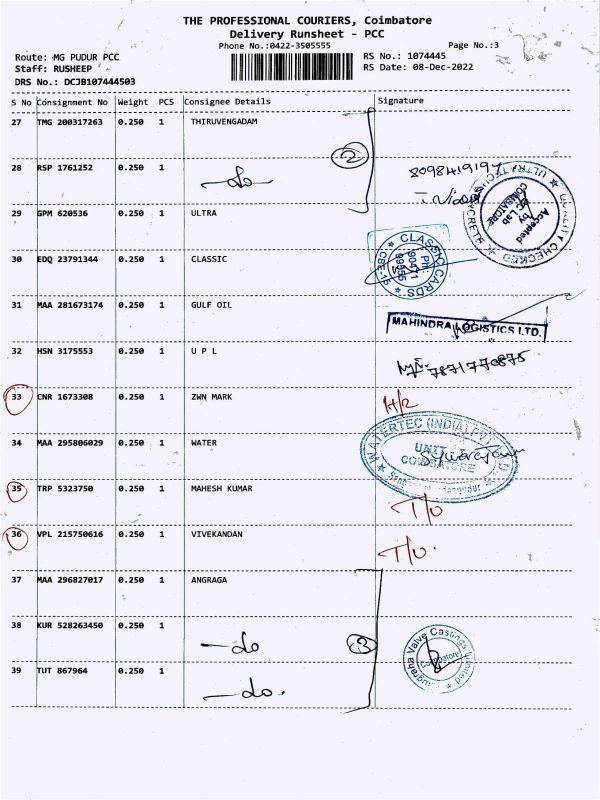 THE PROFESSIONAL COURIERS, Coimbatore
Delivery Runsheet - PCC
Phone No.:0422-3505555
Page No.:3
Route: MG PUDUR PCC
RS No.: 1074445
Staff: RUSHEEP
RS Date: 08-Dec-2022
DRS No.: DCJB107444503
S No Consignment No Weight PCS Consignee Details Signature
27 TMG 200317263 0.250 1 THIRUVENGADAM
2
28 RSP 1761252 0.250 1 -do-
8098419191
29 GPM 620536 0.250 1 ULTRA
ULTRATEC
CONCRETE
QUALITY CHECKED
Accepted
by
QC Lab
COIMBATORE
30 EDQ 23791344 0.250 1 CLASSIC
CLASSIC CARDS
CBE-15
Ph:
90471
99555
31 MAA 281673174 0.250 1 GULF OIL
MAHINDRA LOGISTICS LTD.
32 HSN 3175553 0.250 1 U P L
7871770875
33 CNR 1673308 0.250 1 ZWN MARK
34 MAA 295806029 0.250 1 WATER
WATERTEC (INDIA) PVT LTD
UNIT
COIMBATORE
35 TRP 5323750 0.250 1 MAHESH KUMAR T/O
36 VPL 215750616 0.250 1 VIVEKANDAN T/O.
37 MAA 296827017 0.250 1 ANGRAGA
38 KUR 528263450 0.250 1 -do
3
Anugraha Valve Castings Limited
Coimbatore
39 TUT 867964 0.250 1 -do.